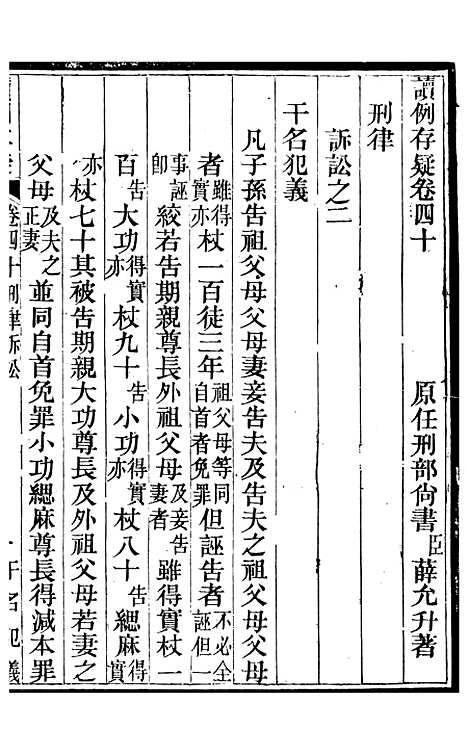 讀例存疑卷四十
原任刑部尚書臣薛允升著
刑律
訴訟之二
干名犯義
凡子孫告祖父母父母妻妾告夫及告夫之祖父母父母
者雖得實亦杖一百徒三年祖父母等同自首者免罪但誣告者不必全誣但一
事誣即絞若告期親尊長外祖父母及妾告妻者雖得實杖一
百告大功得實亦杖九十告小功得實亦杖八十告緦麻得實
亦杖七十其被告期親大功尊長及外祖父母若妻之
父母及夫之正妻並同自首免罪小功緦麻尊長得減本罪
卷四十刑律訴訟
一干名犯義